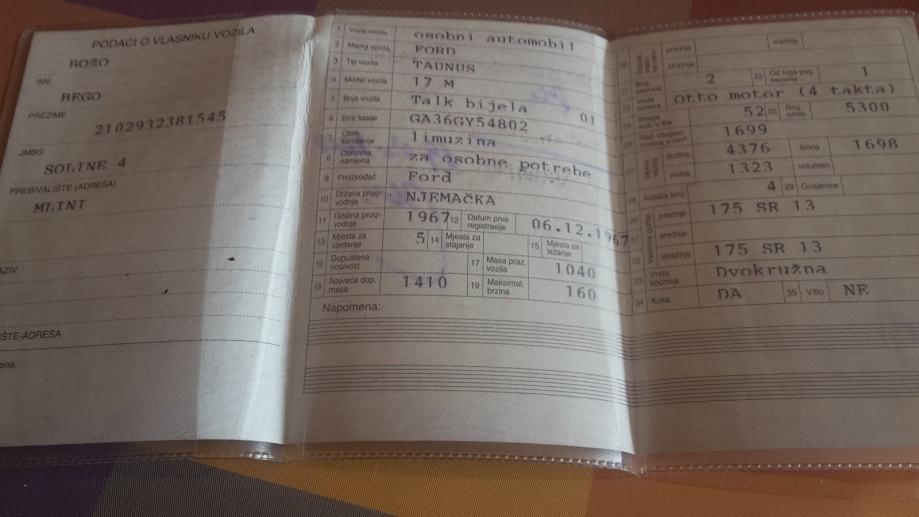 PODACI O VLASNIKU VOZILA
BOŽO
IME
BEGO
PREZIME
2102932381545
JMBG
SOLINE 4
PREBIVALIŠTE (ADRESA)
MLINI
AZIV
IŠTE-ADRESA
ena:
1 Vrsta vozila osobni automobil
2 Marka vozila FORD
3 Tip vozila TAUNUS
4 Model vozila 17 M
5 Boja vozila Talk bijela 01
6 Broj šasije GA36GY54802
7 Oblik karoserije limuzina
8 Osnovna namjena za osobne potrebe
9 Proizvođač Ford
10 Država proizvodnje NJEMAČKA
11 Godina proizvodnje 1967 12 Datum prve registracije 06.12.1967
13 Mjesta za sjedenje 5 14 Mjesta za stajanje 15 Mjesta za ležanje
16 Dopuštena nosivost 17 Masa praz. vozila 1040
18 Najveća dop. masa 1410 19 Maksimal. brzina 160
Napomena:
prednje srednja
stražnje
2 22 Od toga pog. osovina 1
Vrsta motora Otto motor (4 takta)
Snaga mot. u kw 52 25 Broj o/min 5300
Rad. obujam motora u cm³ 1699
dužina 4376 širina 1698
visina 1323 volumen
Kotača broj 4 29 Gusjenice
prednje 175 SR 13
srednje
stražnje 175 SR 13
33 Vrsta kočnica Dvokružna
34 Kuka DA 35 Vitlo NE